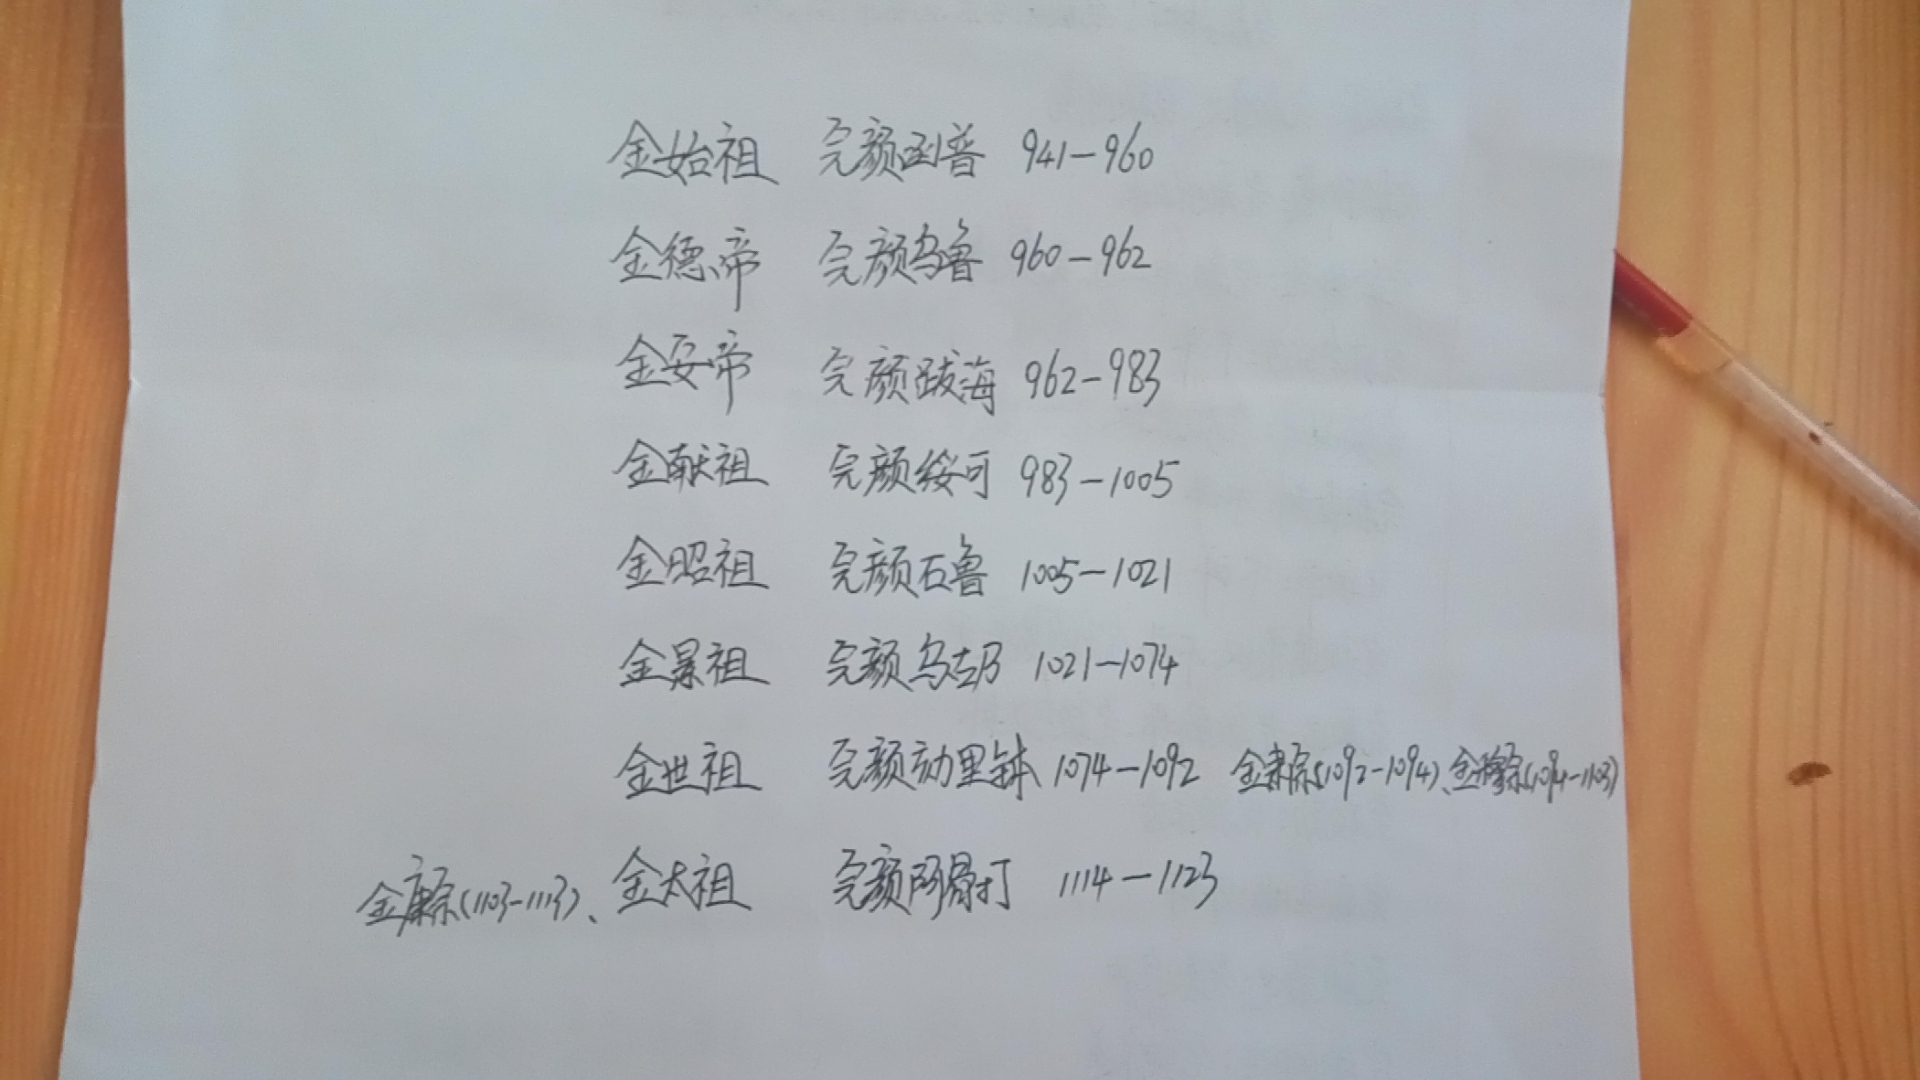 金始祖 完颜函普 941-960
金德帝 完颜乌鲁 960-962
金安帝 完颜跋海 962-983
金献祖 完颜绥可 983-1005
金昭祖 完颜石鲁 1005-1021
金景祖 完颜乌古乃 1021-1074
金世祖 完颜劾里钵 1074-1092 金肃宗(1092-1094)、金穆宗(1094-1103)
金康宗(1103-1113)、金太祖 完颜阿骨打 1114-1123